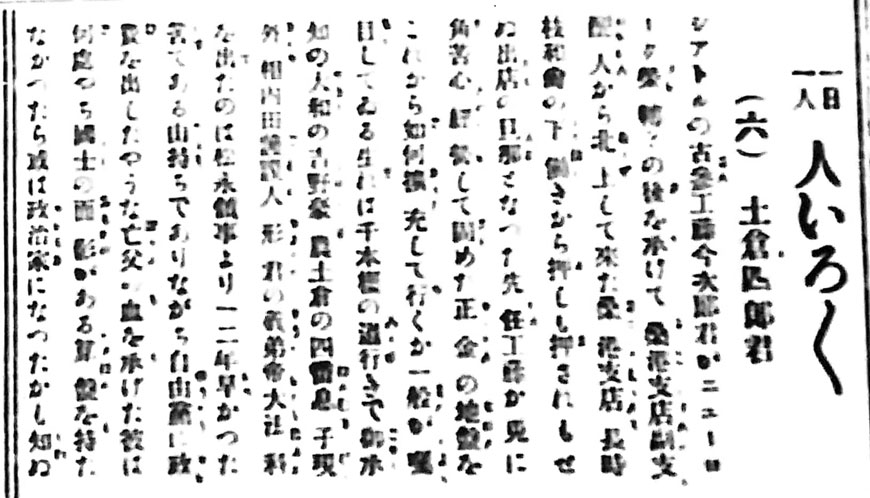 一日一人
人いろ〱
(六) 土倉四郎君
シアトルの古參工藤今次郎君がニューヨ
ーク榮轉の後を承けて桑港支店副支
配人から北上して來た桑港支店長時
枝和角の下働きから押しも押されもせ
ぬ出店の旦那さなつた先任工藤が兎に
角苦心經營して固めた正金の地盤を
これから如何擴充して行くか一般が囑
目してゐる生れは千本櫻の道行きで御承
知の大和の吉野豪農土倉の四番息子現
外相内田 人形君の義弟帝大法科
を出たのは松永領事より一二年早かつた
筈である山持ちでありながら自由黨に政
費を出したやうな亡父の血を承けた彼は
何處やら國士の面影がある算盤を持た
なかつたら或は政治家になつたかも知ぬ